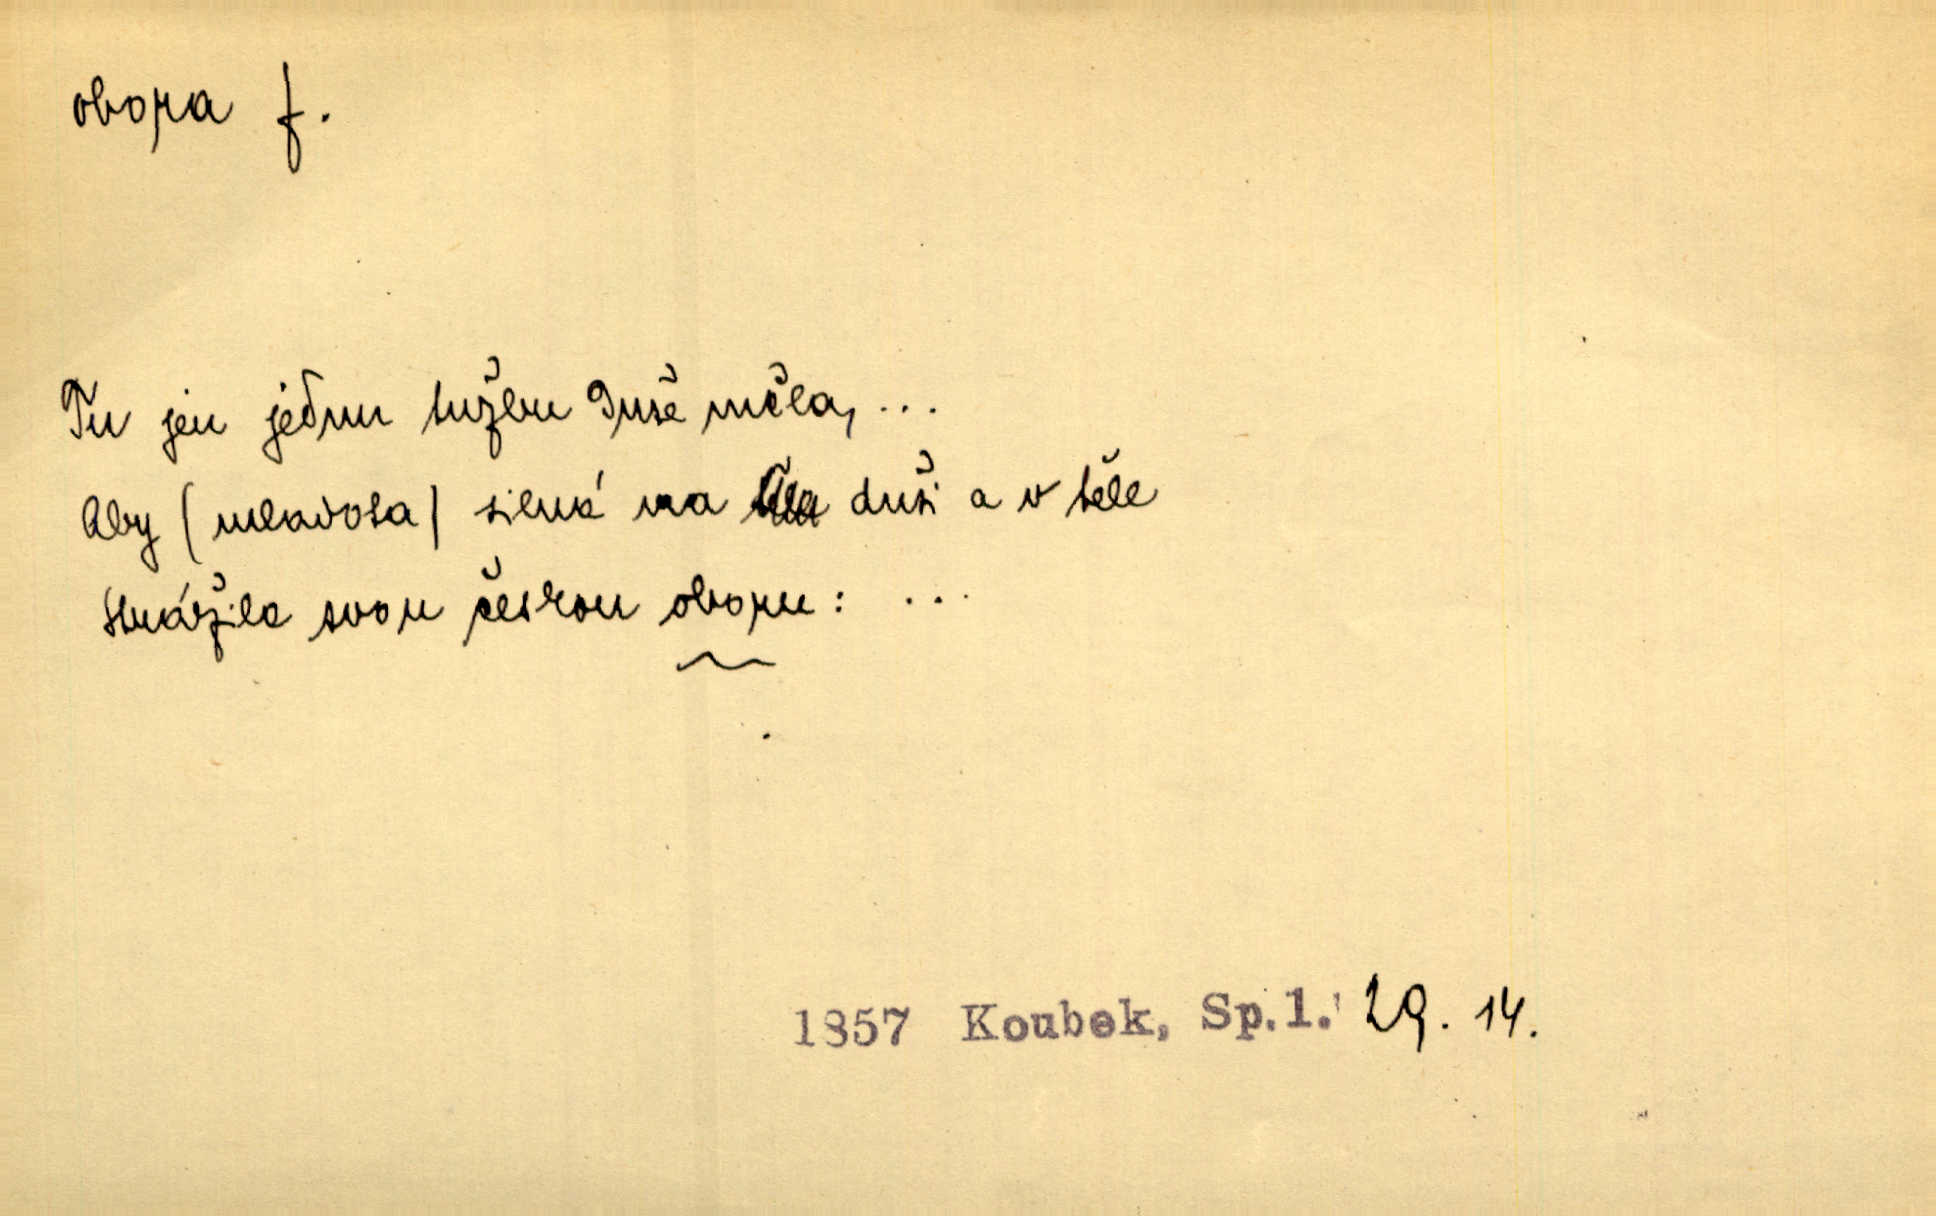 obora f.
Tu jen jednu tužbu duše měla, ...
Aby (mladost) silná na duši a v těle
Strážila svou českou oboru: ...
1857 Koubek, Sp.1. 29. 14.